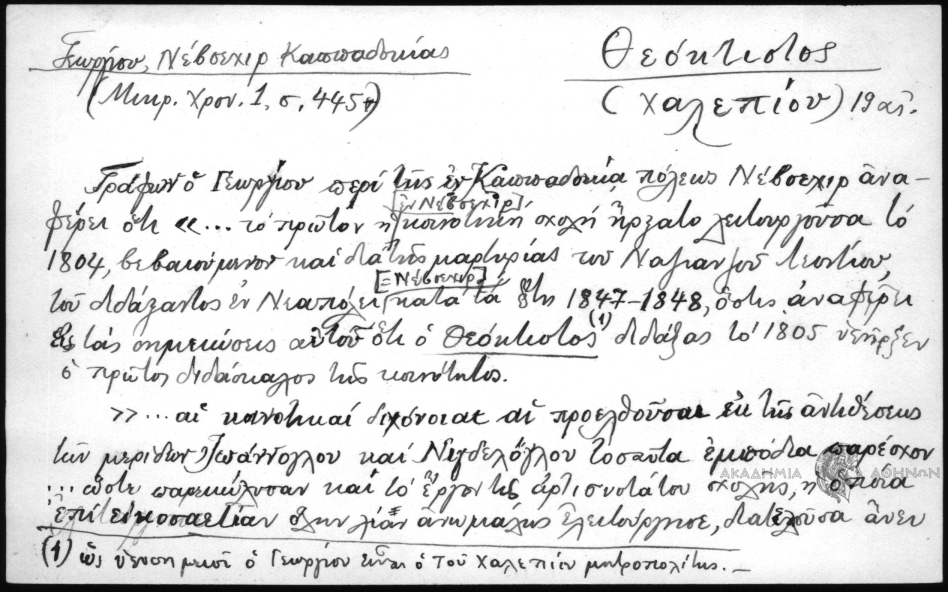 Γεωργίου, Νέβσεχιρ Καππαδοκίας
(Μικρ. Χρον. 1, σ. 445)
Θεόκτιστος
(Χαλεπίου) 19 αἰ.
Γράφων ὁ Γεωργίου περὶ τῆς ἐν Καππαδοκίᾳ πόλεως Νέβσεχιρ ἀνα-
φέρει ὅτι «... τὸ πρῶτον ἡ [ἐν Νέβσεχιρ] κοινοτικὴ σχολὴ ἤρξατο λειτουργοῦσα τὸ
1804, βεβαιούμενον καὶ διὰ τῆς μαρτυρίας τοῦ Ναζιανζοῦ Λεοντίου,
τοῦ διδάξαντος ἐν Νεαπόλει [=Νέβσεχιρ] κατὰ τὰ ἔτη 1847-1848, ὅστις ἀναφέρει
εἰς τὰς σημειώσεις αὐτοῦ ὅτι ὁ Θεόκτιστος (1) διδάξας τὸ 1805 ὑπῆρξεν
ὁ πρῶτος διδάσκαλος τῆς κοινότητος.
»... αἱ κοινοτικαὶ διχόνοιαι αἱ προελθοῦσαι ἐκ τῆς ἀντιθέσεως
τῶν μερίδων καὶ τοσαῦτα ἐμπόδια παρέσχον
... ὥστε παρεκώλυσαν καὶ τὸ ἔργον τῆς ἀρτισυστάτου σχολῆς, ἡ ὁποία
ἐπὶ εἰκοσαετίαν ὅλην λίαν ἀνωμάλως ἐλειτούργησε, διατελοῦσα ἄνευ
(1) ὡς ὑποσημειοῖ ὁ Γεωργίου εἶναι ὁ τοῦ Χαλεπίου μητροπολίτης.—
ΑΚΑΔΗΜΙΑ ΑΘΗΝΩΝ